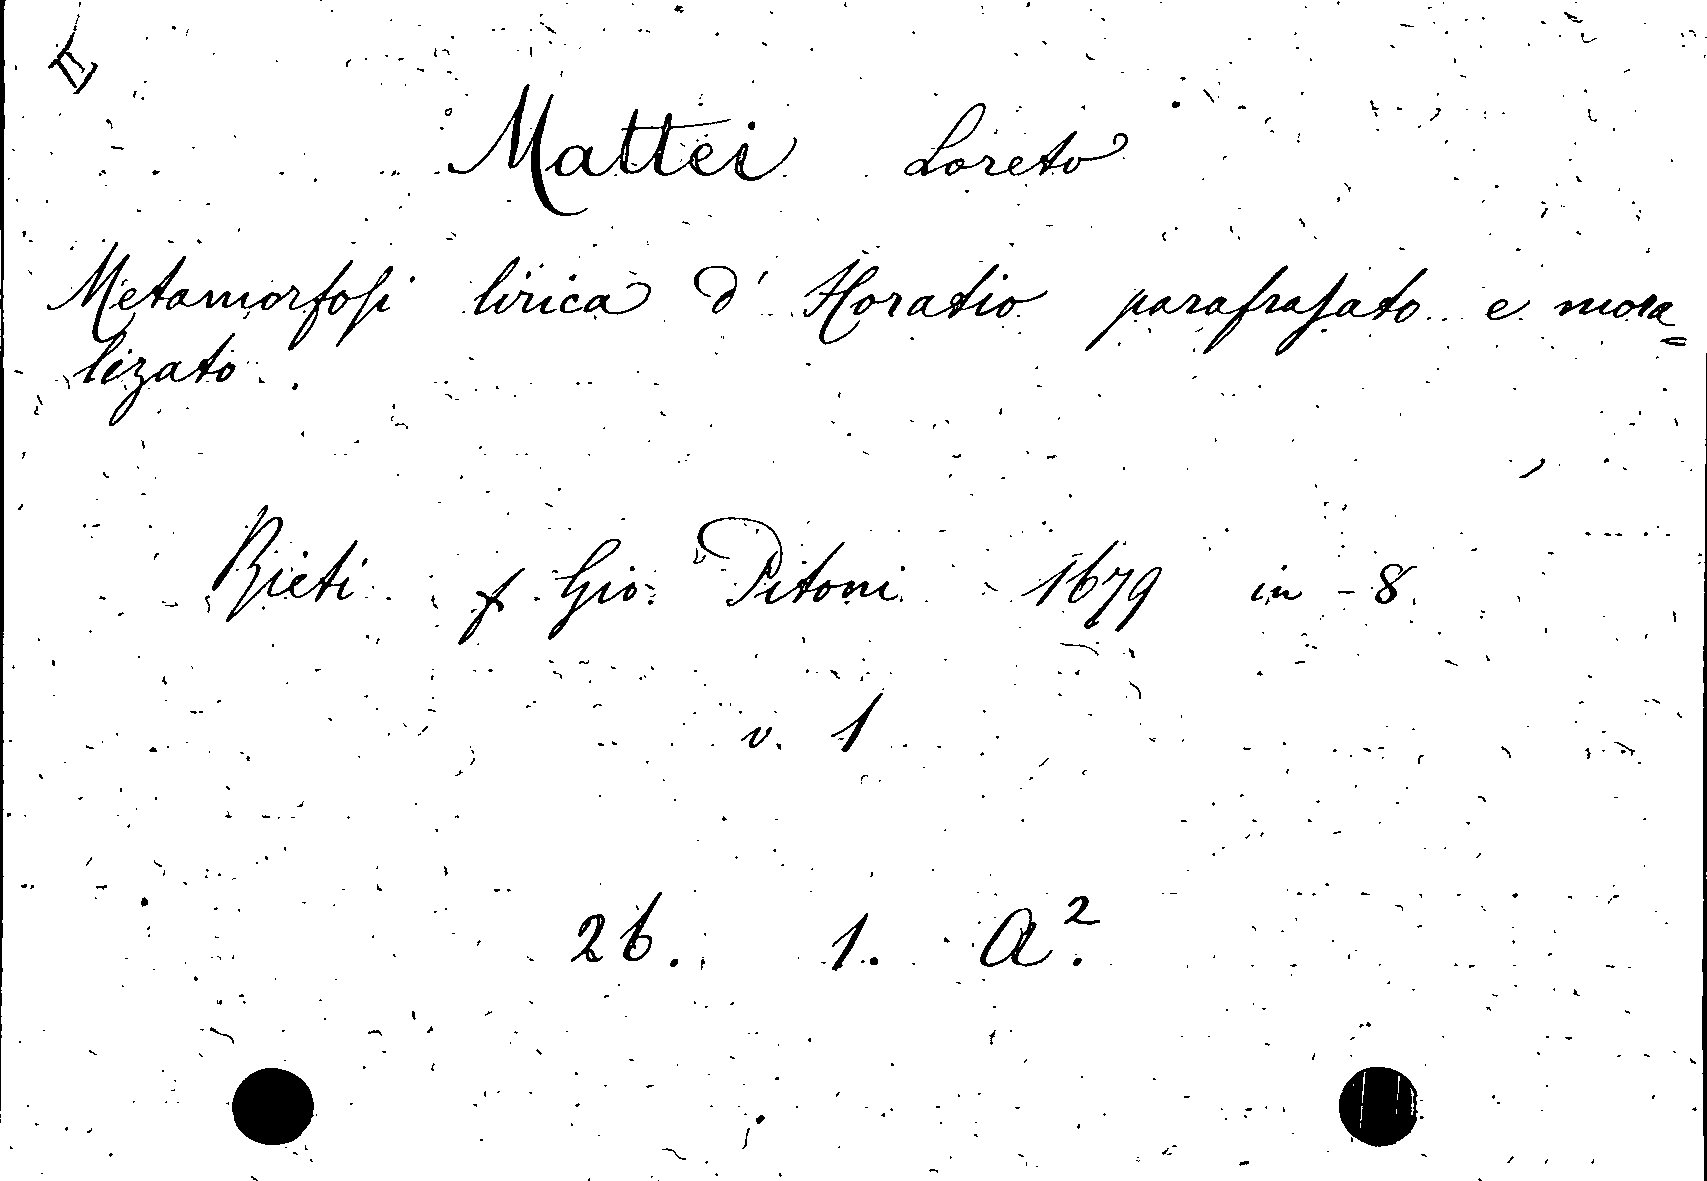 II
Mattei Loreto
Metamorfosi lirica d' Horatio parafrasato e mora=
lizato.
Rieti f. Gio: Pitoni 1679 in - 8.
v. 1
26. 1. A².